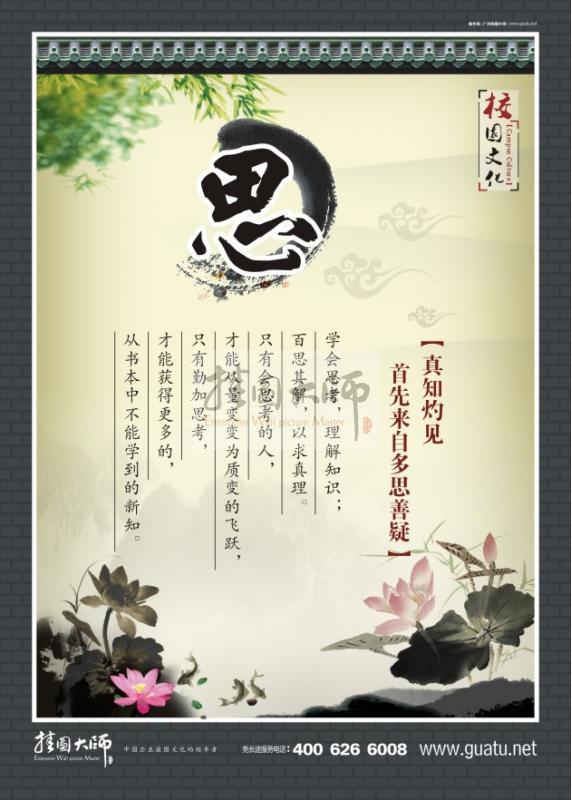 www.guatu.net
校园文化
【Campus Culture】
思
【真知灼见
首先来自多思善疑】
学会思考，理解知识；
百思其解，以求真理。
只有会思考的人，
才能从量变变为质变的飞跃，
只有勤加思考，
才能获得更多的，
从书本中不能学到的新知。
挂图大师
Enterprise Wall picture Master
挂图大师
Enterprise Wall picture Master
中国企业挂图文化的领导者
免长途服务电话：400 626 6008
www.guatu.net